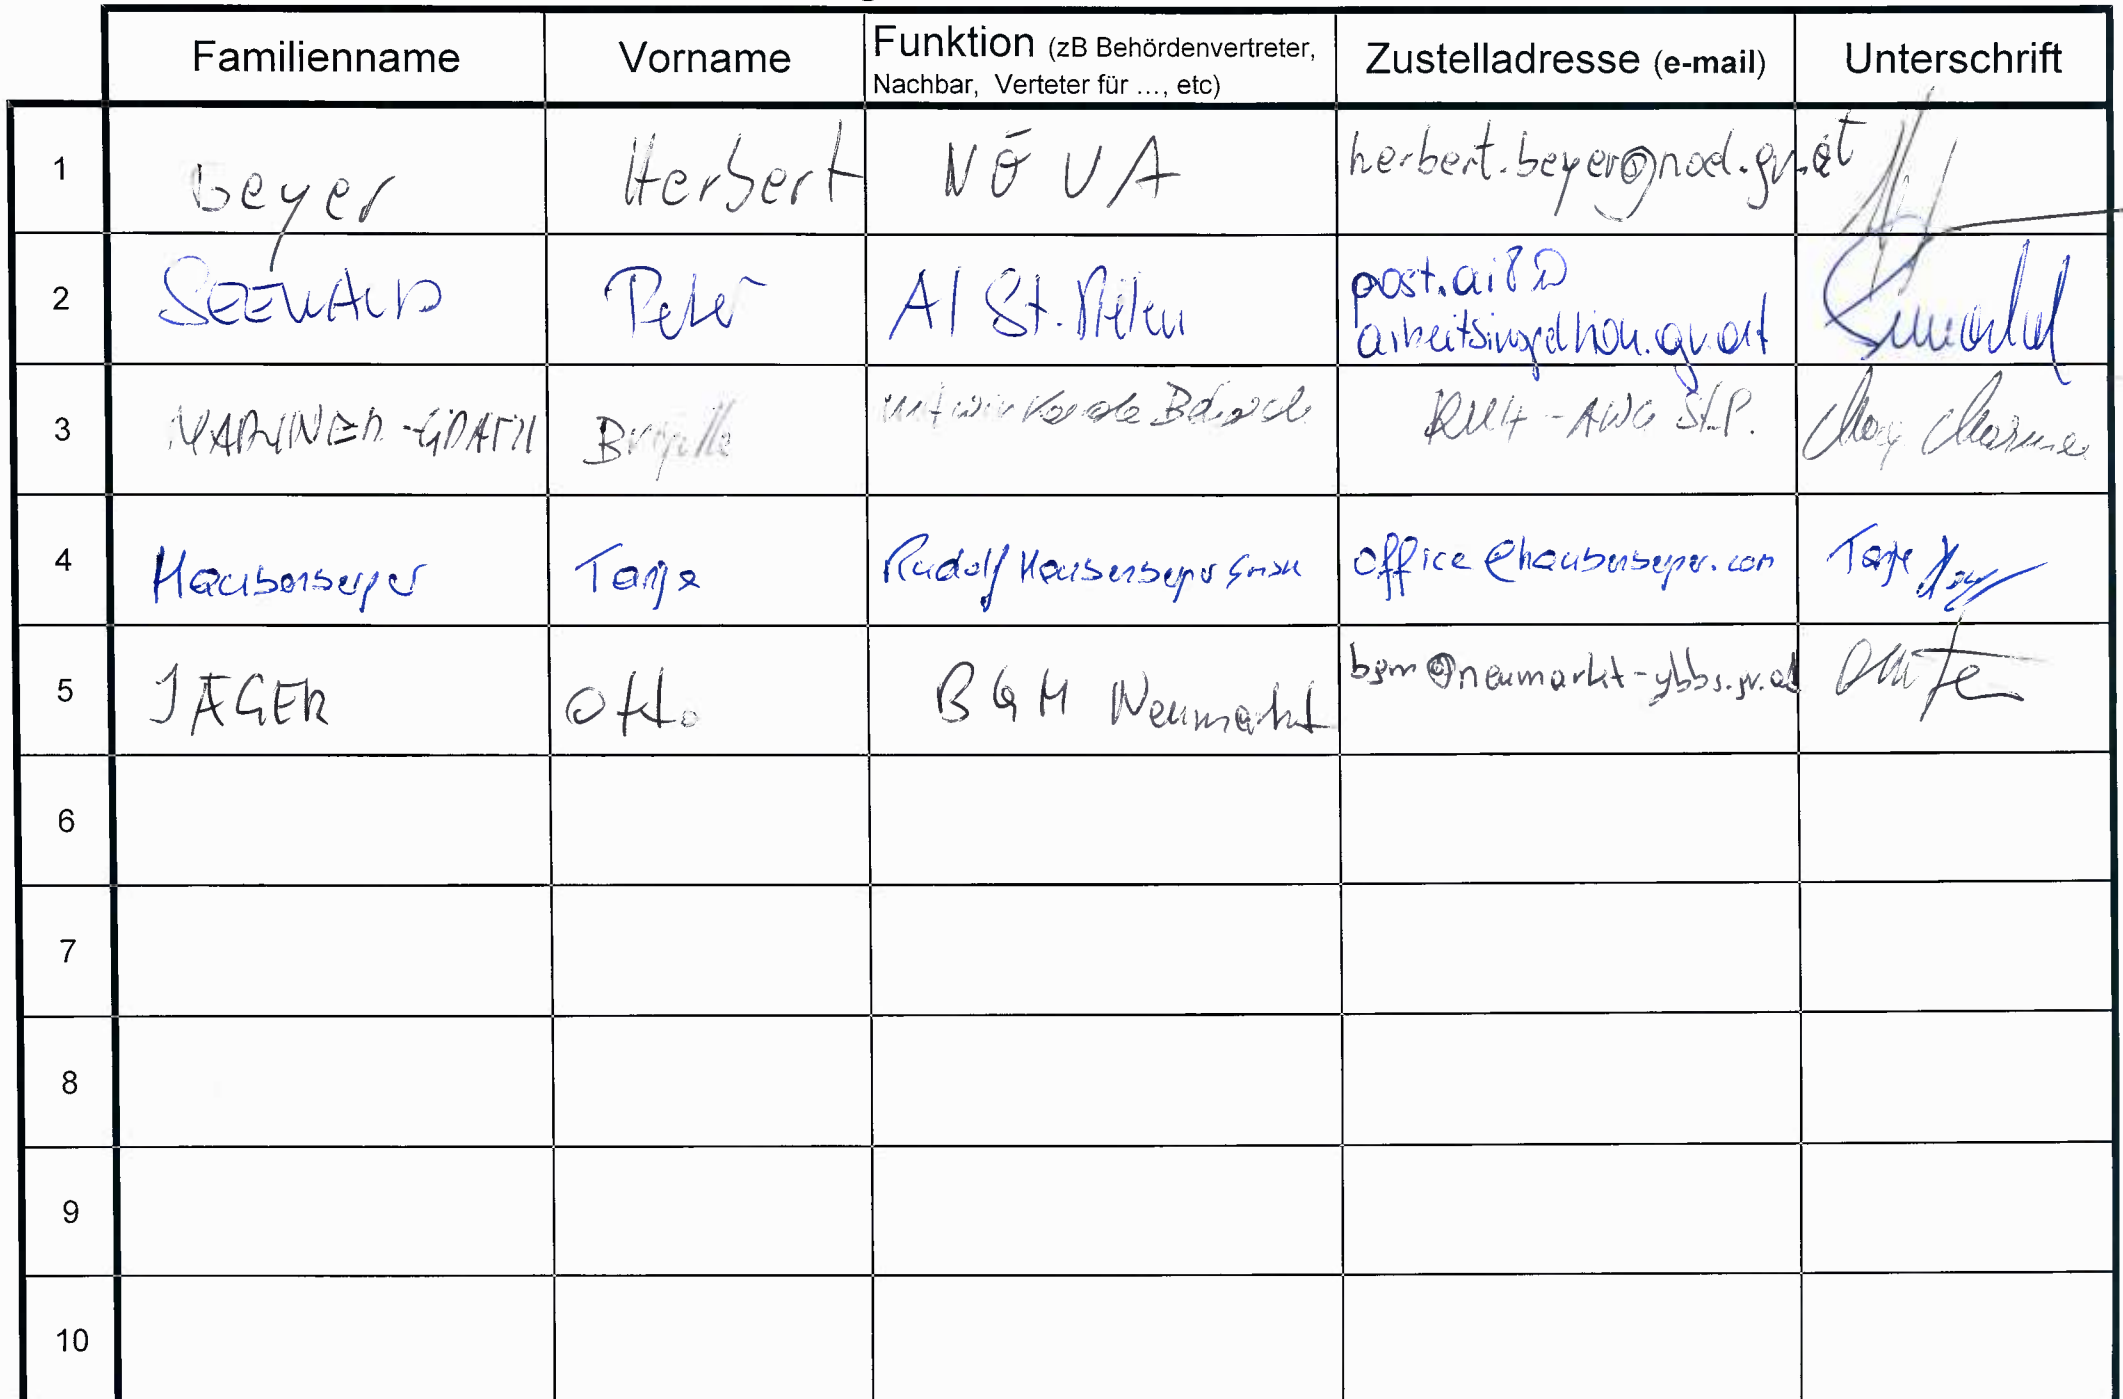 Familienname Vorname Funktion (zB Behördenvertreter, Nachbar, Verteter für ..., etc) Zustelladresse (e-mail) Unterschrift
1 Beyer Herbert NÖ UA herbert.beyer@noel.gv.at
2 SEEWALD Peter AI St. Pölten post.ai8@
arbeitsinspektion.gv.at
3 Brigitte mitwirkende RU4 - AWG St.P.
4 Hauberger Tanja Rudolf GmbH office@
5 JÄGER Otto BGM Neumarkt bgm@neumarkt-ybbs.gv.at
6
7
8
9
10